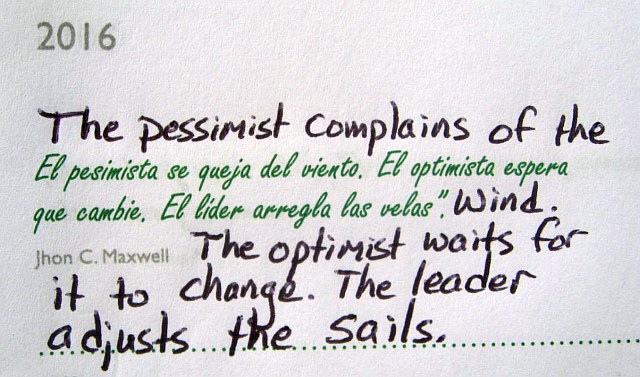 2016
The pessimist complains of the
El pesimista se queja del viento. El optimista espera
que cambie. El líder arregla las velas". Wind.
Jhon C. Maxwell The optimist waits for
it to change. The leader
adjusts the sails.